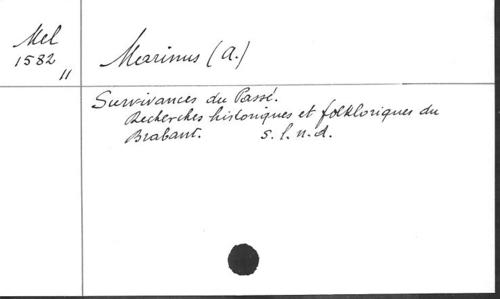 Mel
1582
11
Marinus (A.)
Survivances du Passé.
Recherches historiques et folkloriques du
Brabant. s.l.n.d.